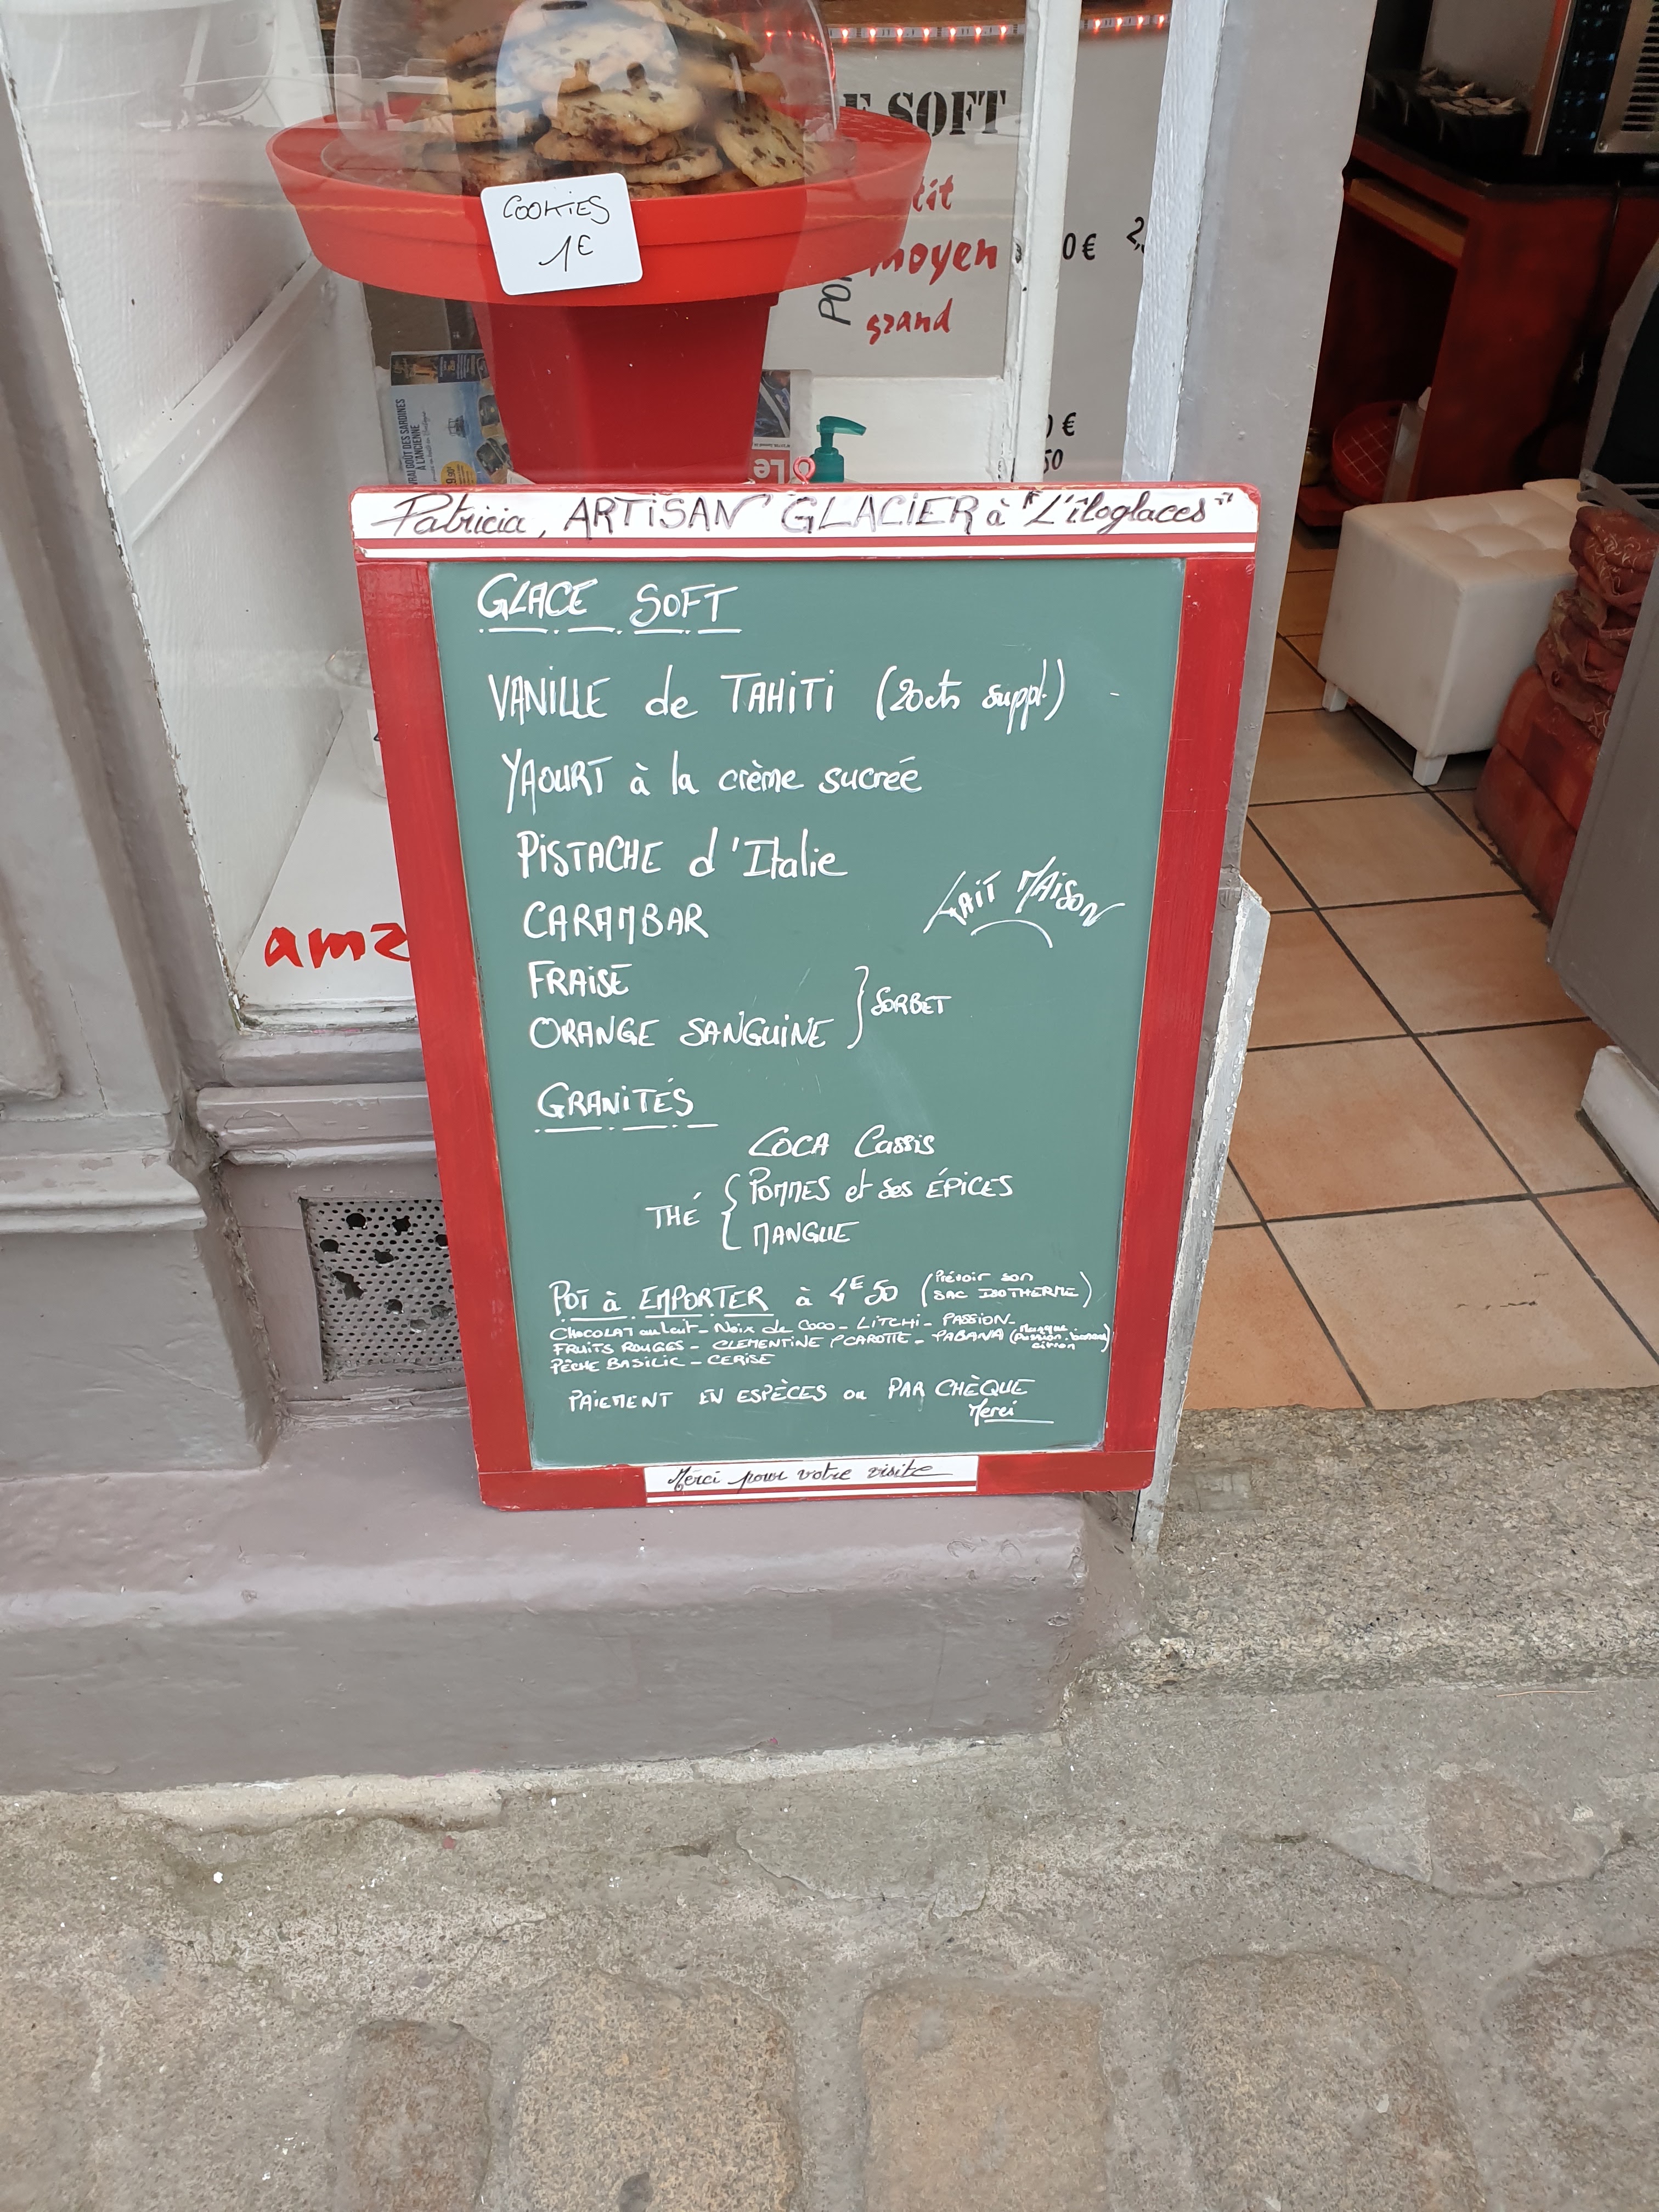 COOKIES
1€
E SOFT
tit
moyen
grand
0 €
0 €
50
VRAI GOÛT DES SARDINES
À L'ANCIENNE
Le
ama
Patricia, ARTISAN GLACIER à "L'îloglaces"
GLACE SOFT
VANILLE de TAHITI (20cts suppl.)
YAOURT à la crème sucrée
PISTACHE d'Italie
CARAMBAR
FAIT MAISON
FRAISE
ORANGE SANGUINE } SORBET
GRANITÉS
COCA Cassis
THÉ { POMMES et ses ÉPICES
MANGUE
POT à EMPORTER à 4€50 (Prévoir son
SAC ISOTHERME)
CHOCOLAT au Lait - Noix de Coco - LITCHI - PASSION -
FRUITS ROUGES - CLEMENTINE CAROTTE - PABANA (Mangue.
Passion. banane
citron)
PÊCHE BASILIC - CERISE
PAIEMENT EN ESPÈCES ou PAR CHÈQUE
Merci
Merci pour votre visite